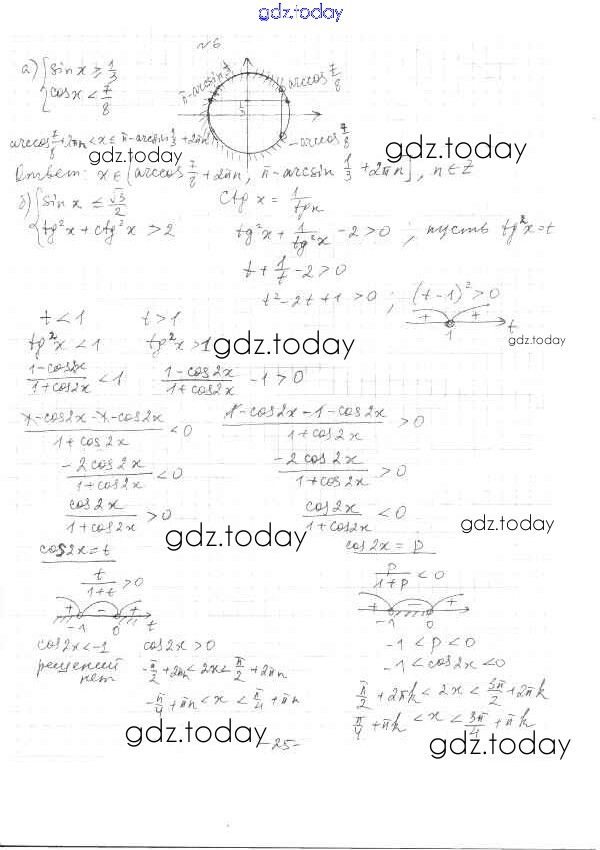 gdz.today
№6
а) { sin x ≥ 1/3
{ cos x < 7/8
π - arcsin 1/3
arccos 7/8
1/3
- arccos 7/8
arccos 7/8 + 2πn < x ≤ π - arcsin 1/3 + 2πn
gdz.today
gdz.today
Ответ: x ∈ (arccos 7/8 + 2πn, π - arcsin 1/3 + 2πn], n ∈ Z
б) { sin x ≤ √3/2
{ tg²x + ctg²x > 2
ctg x = 1/tg x
tg²x + 1/tg²x - 2 > 0 ; пусть tg²x = t
t + 1/t - 2 > 0
t² - 2t + 1 > 0 ; (t - 1)² > 0
+ + 1 t
t < 1 t > 1
tg²x < 1 tg²x > 1
gdz.today
gdz.today
(1-cos2x)/(1+cos2x) < 1 (1-cos2x)/(1+cos2x) - 1 > 0
(1-cos2x-1-cos2x)/(1+cos2x) < 0 (1-cos2x-1-cos2x)/(1+cos2x) > 0
(-2cos2x)/(1+cos2x) < 0 (-2cos2x)/(1+cos2x) > 0
cos2x/(1+cos2x) > 0 cos2x/(1+cos2x) < 0
gdz.today
gdz.today
cos2x = t cos2x = p
t/(1+t) > 0 p/(1+p) < 0
+ - + + - +
-1 0 t -1 0
cos2x < -1 cos2x > 0 -1 < p < 0
решений нет -π/2 + 2πn < 2x < π/2 + 2πn -1 < cos2x < 0
-π/4 + πn < x < π/4 + πn π/2 + 2πk < 2x < 3π/2 + 2πk
π/4 + πk < x < 3π/4 + πk
gdz.today
-25-
gdz.today